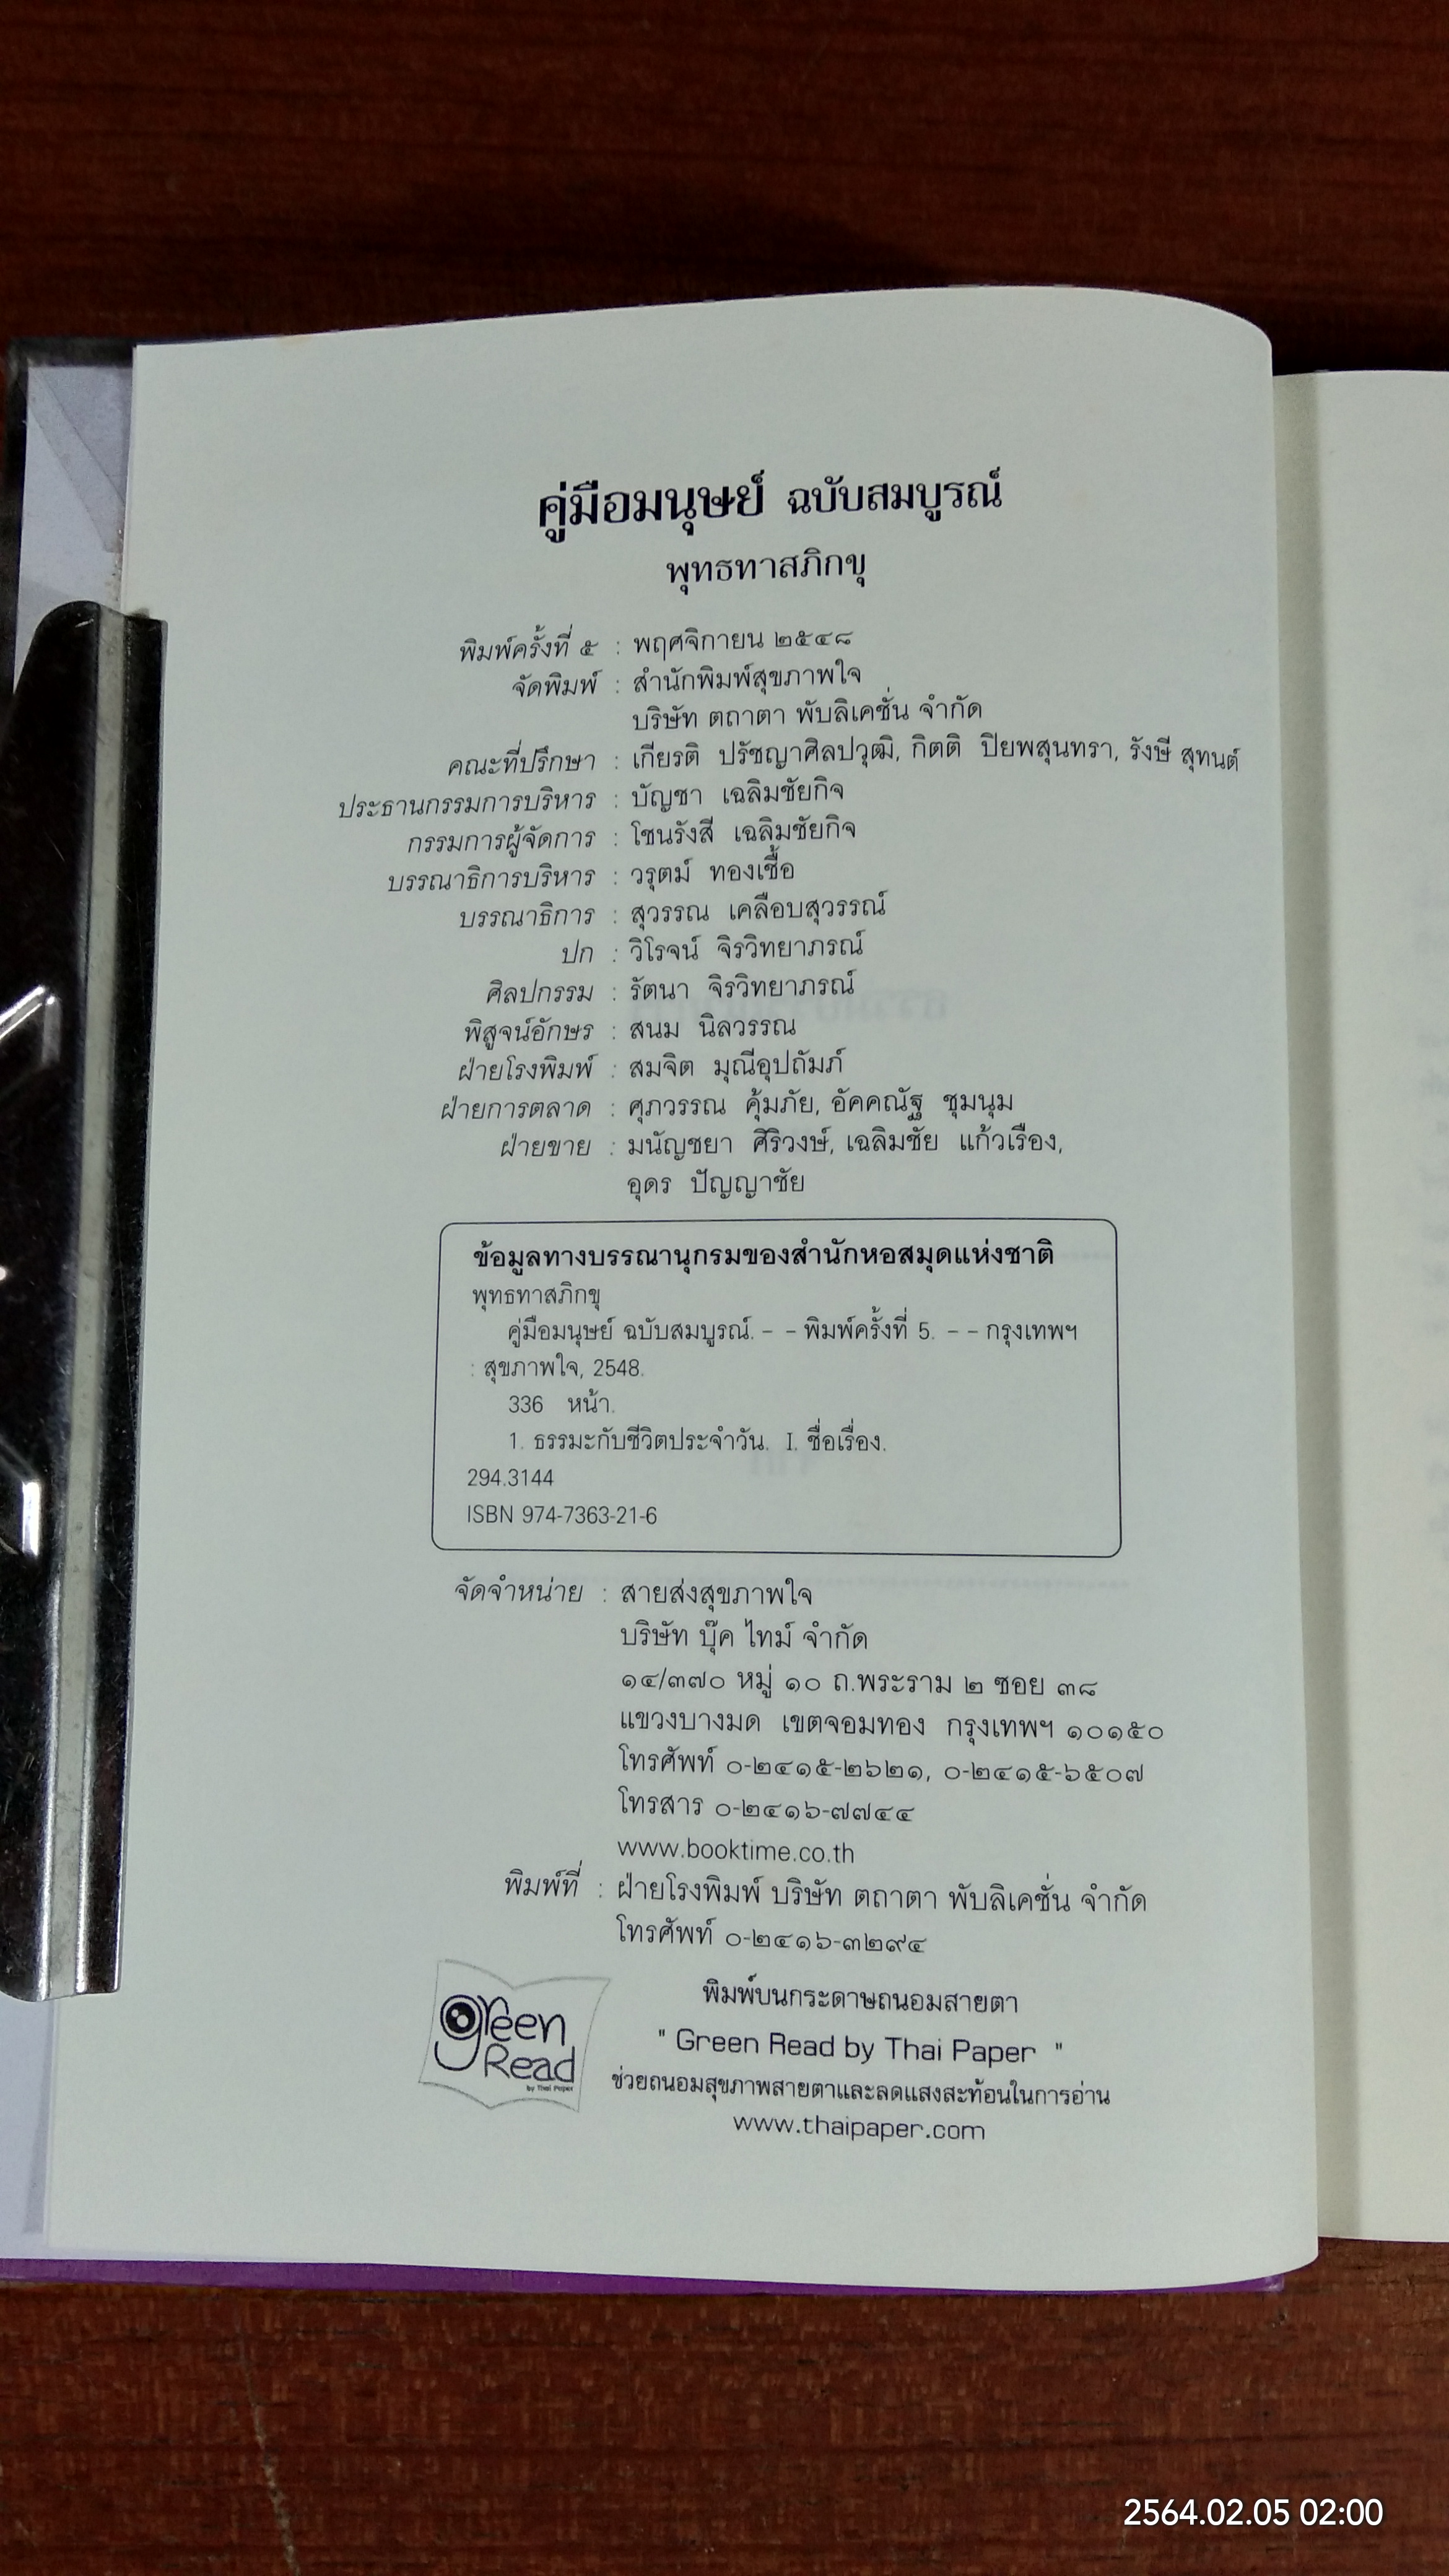 คู่มือมนุษย์ ฉบับสมบูรณ์
พุทธทาสภิกขุ
พิมพ์ครั้งที่ ๕ : พฤศจิกายน ๒๕๔๘
จัดพิมพ์ : สำนักพิมพ์สุขภาพใจ
บริษัท ตถาตา พับลิเคชั่น จำกัด
คณะที่ปรึกษา : เกียรติ ปรัชญาศิลปวุฒิ, กิตติ ปิยพสุนทรา, รังษี สุทนต์
ประธานกรรมการบริหาร : บัญชา เฉลิมชัยกิจ
กรรมการผู้จัดการ : โชนรังสี เฉลิมชัยกิจ
บรรณาธิการบริหาร : วรุตม์ ทองเชื้อ
บรรณาธิการ : สุวรรณ เคลือบสุวรรณ์
ปก : วิโรจน์ จิรวิทยาภรณ์
ศิลปกรรม : รัตนา จิรวิทยาภรณ์
พิสูจน์อักษร : สนม นิลวรรณ
ฝ่ายโรงพิมพ์ : สมจิต มุณีอุปถัมภ์
ฝ่ายการตลาด : ศุภวรรณ คุ้มภัย, อัคคณัฐ ชุมนุม
ฝ่ายขาย : มนัญชยา ศิริวงษ์, เฉลิมชัย แก้วเรือง,
อุดร ปัญญาชัย
ข้อมูลทางบรรณานุกรมของสำนักหอสมุดแห่งชาติ
พุทธทาสภิกขุ
คู่มือมนุษย์ ฉบับสมบูรณ์. - - พิมพ์ครั้งที่ 5. - - กรุงเทพฯ
: สุขภาพใจ, 2548.
336 หน้า.
1. ธรรมะกับชีวิตประจำวัน. I. ชื่อเรื่อง.
294.3144
ISBN 974-7363-21-6
จัดจำหน่าย : สายส่งสุขภาพใจ
บริษัท บุ๊ค ไทม์ จำกัด
๑๔/๓๗๐ หมู่ ๑๐ ถ.พระราม ๒ ซอย ๓๘
แขวงบางมด เขตจอมทอง กรุงเทพฯ ๑๐๑๕๐
โทรศัพท์ ๐-๒๔๑๕-๒๖๒๑, ๐-๒๔๑๕-๖๕๐๗
โทรสาร ๐-๒๔๑๖-๗๗๔๔
www.booktime.co.th
พิมพ์ที่ : ฝ่ายโรงพิมพ์ บริษัท ตถาตา พับลิเคชั่น จำกัด
โทรศัพท์ ๐-๒๔๑๖-๓๒๙๔
green
Read
by Thai Paper
พิมพ์บนกระดาษถนอมสายตา
" Green Read by Thai Paper "
ช่วยถนอมสุขภาพสายตาและลดแสงสะท้อนในการอ่าน
www.thaipaper.com
2564.02.05 02:00